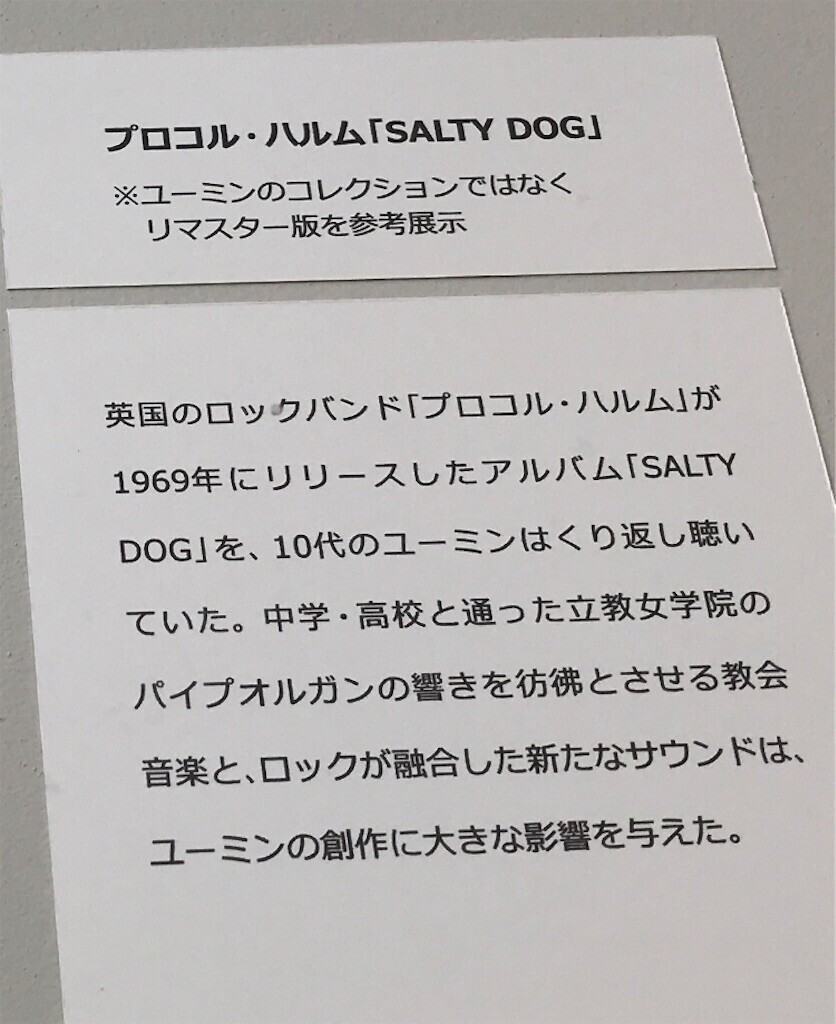 プロコル・ハルム「SALTY DOG」
※ユーミンのコレクションではなく
リマスター版を参考展示
英国のロックバンド「プロコル・ハルム」が
1969年にリリースしたアルバム「SALTY
DOG」を、10代のユーミンはくり返し聴い
ていた。中学・高校と通った立教女学院の
パイプオルガンの響きを彷彿とさせる教会
音楽と、ロックが融合した新たなサウンドは、
ユーミンの創作に大きな影響を与えた。